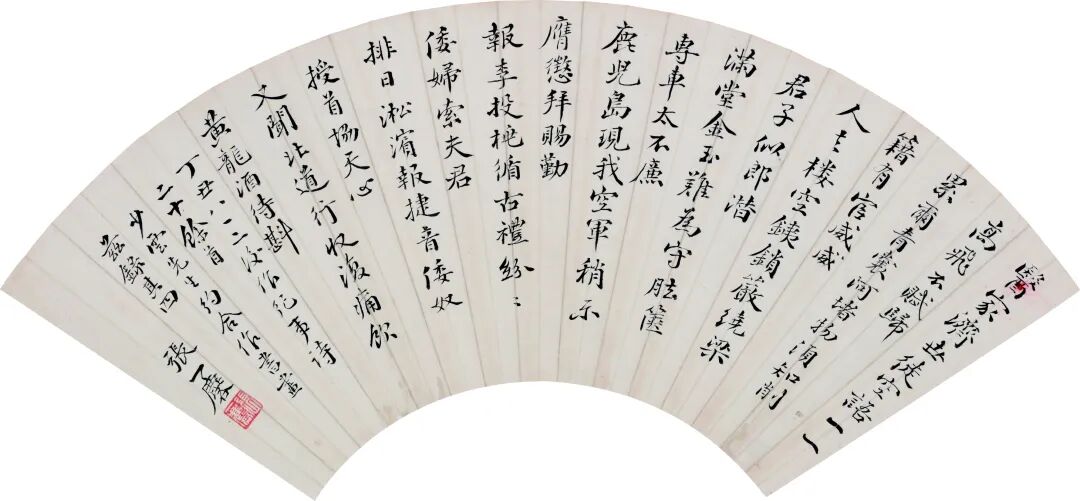 醫家濟世徒空語一一
高飛去賦歸
累爾青囊阿堵物須知削
籍有官威
人去楼空鐵鎖嚴繞梁
君子似郎潛
滿堂金玉難為守胠篋
專車太不廉
鹿児島現我空軍稍示
膺懲拜賜勤
報李投桃循古禮紛〻
倭婦索夫君
排日淞濱報捷音倭奴
授首協天心
又聞北道行收復痛飲
黃龍酒待斟
丁丑八一三後作紀事詩
二十餘首
少雲先生約合作書畫
茲錄其四
張